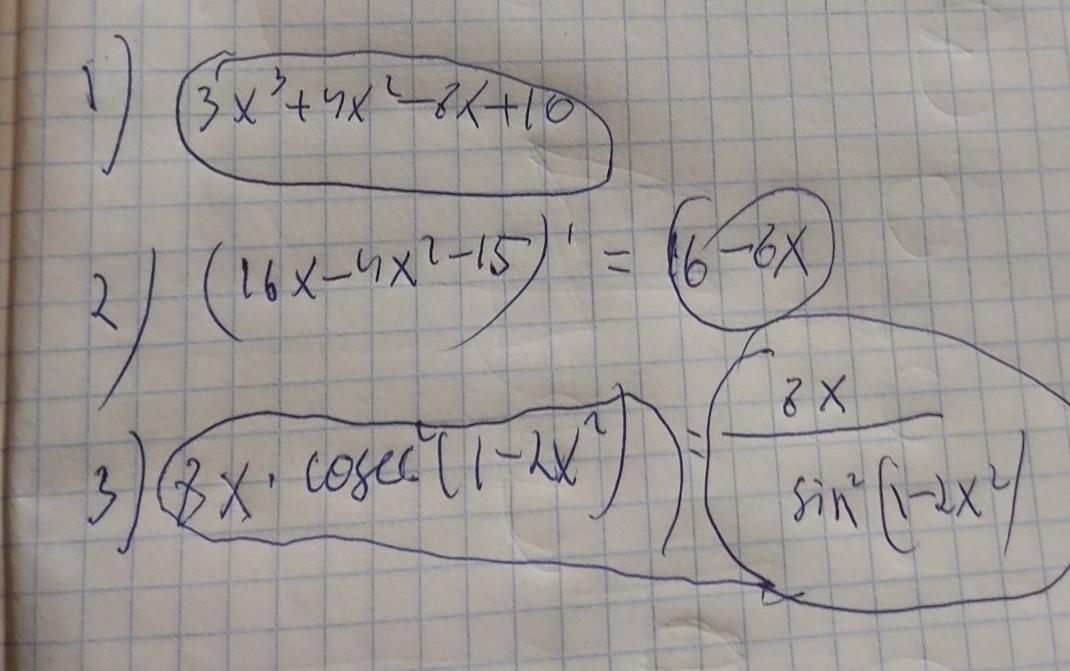 1) 3x³+4x²-8x+10
2) (16x-4x²-15)' = 16-8x
3) 8x · cosec²(1-2x²) = 8x / sin²(1-2x²)